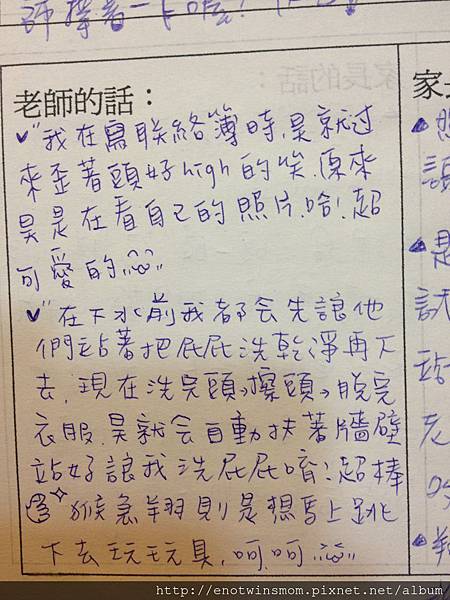 老師的話：
我在寫聯絡簿時,昊就过
來歪著頭好high的笑.原來
昊是在看自己的照片.哈!超
可愛的
在下水前我都会先讓他
們站著把屁屁洗乾淨再下
去,現在洗完頭→擦頭→脫完
衣服.昊就会自動扶著牆壁
站好讓我洗屁屁唷!超棒
猴急翔則是想馬上跳
下去玩玩具,呵.呵
家
http://enotwinsmom.pixnet.net/album/